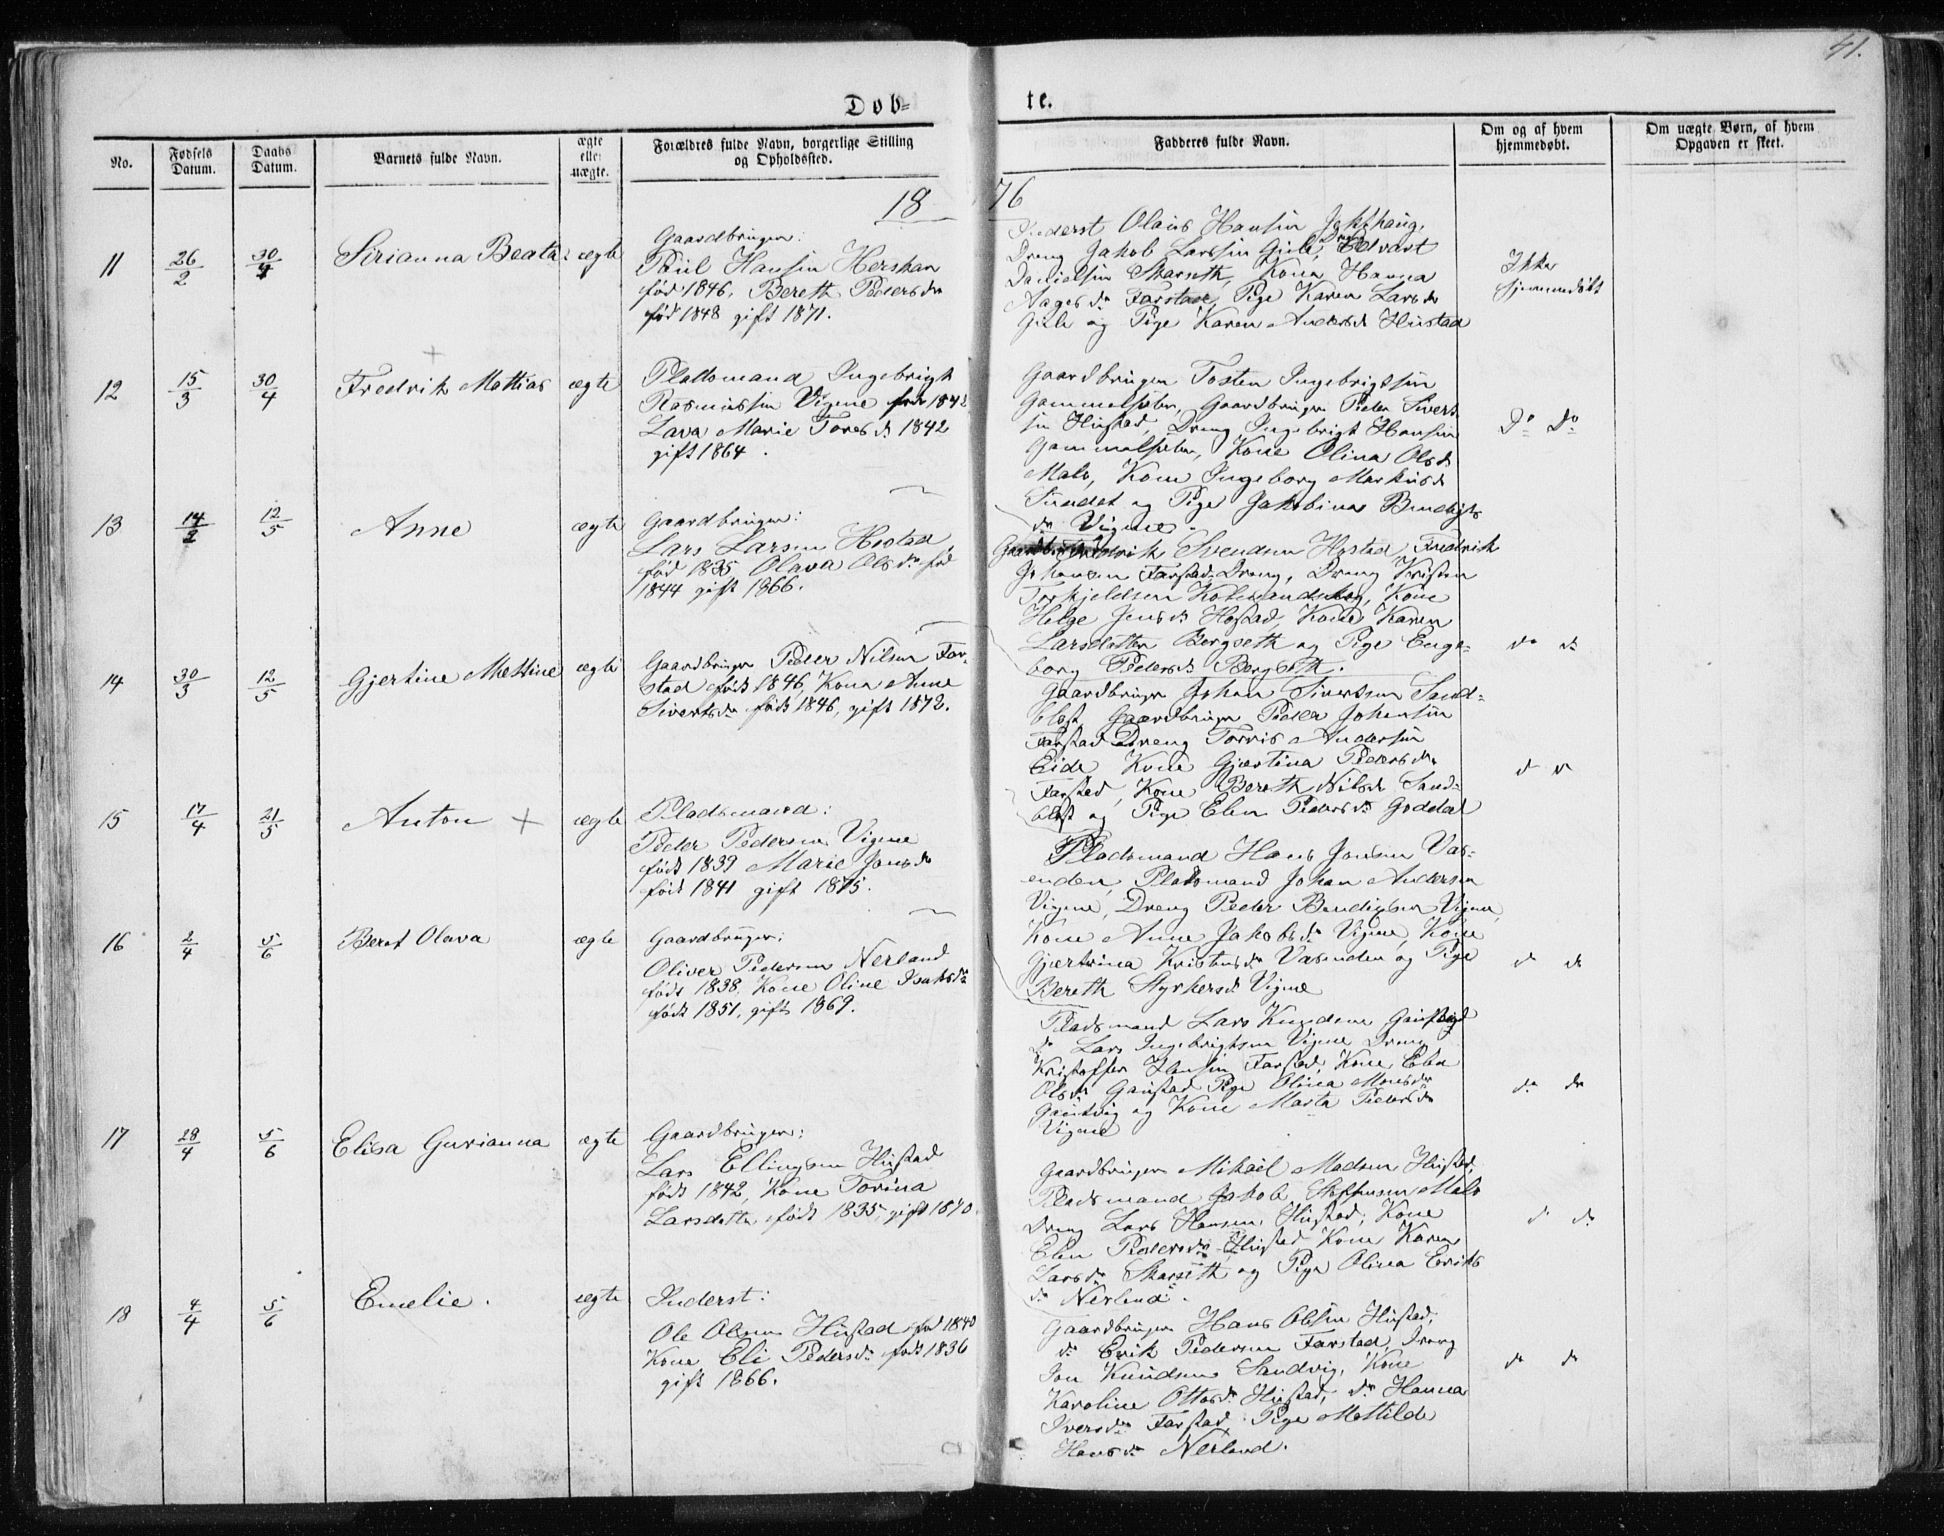 41.
Døb=
te.
No.
Fødsels Datum.
Daabs Datum.
Barnets fulde Navn.
ægte eller uægte.
Forældres fulde Navn, borgerlige Stilling og Opholdssted.
Fadderes fulde Navn.
Om og af hvem hjemmedøbt.
Om uægte Børn, af hvem Opgaven er skeet.
1876
11
26/2
30/4
Sirianna Beata
ægte
Gaardbruger:
Poul Hansen Hershau
fød 1846, Bereth Pedersdr
fød 1848 gift 1871.
Inderst Olaus Hansen
Dreng Jakob Larssen Gule, Edvart
Danielsen Skarseth, Kone Hanna
Aagesdr Farstad, Pige Karen Larsdr
Gule og Pige Karen Andersdr Hustad
Ikke
hjemmedøbt
12
15/3
30/4
Fredrik Mattias
ægte
Pladsmand Ingebrigt
Rasmussen Vigme født 1842
Lava Marie Toresdr 1842
gift 1864.
Gaardbruger Tosten Ingebrigtsen
Gammelsæter, Gaardbruger Peder Sivert-
sen Hustad, Dreng Ingebrigt Hansen
Gammelsæter, Kone Olina Olsdr
Malo, Kone Ingeborg Markusdr
Sundet og Pige Jakobina Bendigts
dr Vigme.
Do Do
13
14/2
12/5
Anne
ægte
Gaardbruger:
Lars Larsen Hostad
fød 1835 Olava Olsdr fød
1844 gift 1866.
Gaardbr Fredrik Svendsen Hostad, Fredrik
Johansen Farstad Dreng, Dreng Kristen
Torkjeldsen, Kone
Helge Jensdr Hostad, Kone Karen
Larsdatter Bergseth og Pige Enge-
borg Pedersdr Bergseth.
do do
14
30/3
12/5
Gjertine Mettine
ægte
Gaardbruger Peder Nilsen Far-
stad født 1846, Kona Anne
Sivertsdr født 1846, gift 1872.
Gaardbruger Johan Sivertsen Sand-
blost, Gaardbruger Peder Johansen
Farstad Dreng Torris Andersen
Eide, Kone Gjertina Pedersdr
Farstad, Kone Bereth Nilsdr Sand-
blost og Pige Elen Pedersdr Goddal
do do
15
17/4
21/5
Anton +
ægte
Pladsmand:
Peder Pedersen Vigme
født 1839 Marie Jonsdr
født 1841 gift 1875.
Pladsmand Hans Jonsen Vas-
enden, Pladsmand Johan Andersen
Vigme, Dreng Peder Bendigtsen Vigme,
Kone Anne Jakobsdr Vigme, Kone
Gjertrina Kristensdr Vasenden og Pige
Bereth Styrkersdr Vigme
do do
16
2/4
5/6
Beret Olava
ægte
Gaardbruger:
Oliver Pedersen Nerland
født 1838, Kone Oline Isaksdr
født 1851, gift 1869.
Pladsmand Lars Knudsen Gaustad
do Lars Ingebrigtsen Vigme Dreng
Kristoffer Hansen Farstad, Kone Elen
Olsdr Gaustad Pige Olina Monsdr
og Kone Marta Pedersdr
Vigme
do do
17
28/4
5/6
Elisa Gurianna
ægte
Gaardbruger:
Lars Ellingsen Hustad
født 1842, Kone Torina
Larsdatter født 1835, gift 1870.
Gaardbruger Mikael Madsen Hustad,
Pladsmand Jakob Steffensen Malo
Dreng Lars Hansen Hustad, Kone
Elen Pedersdr Hustad Kone Karen
Larsdr Skarseth og Pige Olina Eriks
dr Nerland.
do do
18
4/4
5/6
Emelie.
ægte
Inderst:
Ole Olsen Hustad fød 1840
Kone Eli Pedersdr født 1836
gift 1866.
Gaardbruger Hans Olsen Hustad,
do Erik Pedersen Farstad, Dreng
Jon Knudsen Sandvig, Kone
Karoline Ottosdr Hustad, do Hanna
Iversdr Farstad, Pige Mattilde
Hansdr Nerland.
do do